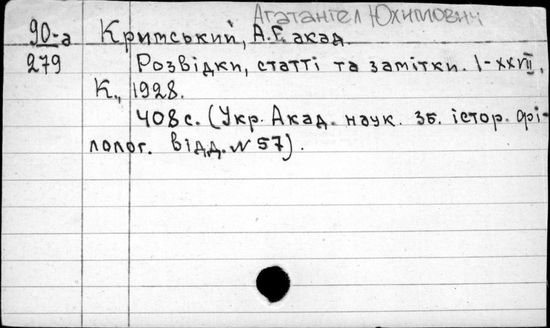 Агатангел Юхимович
90-а Кримський, А.Є. акад.
279 Розвідки, статті та замітки. I-XXVII,
К., 1928.
408 с. (Укр. Акад. наук. Зб. істор. фі-
лолог. відд. № 57).